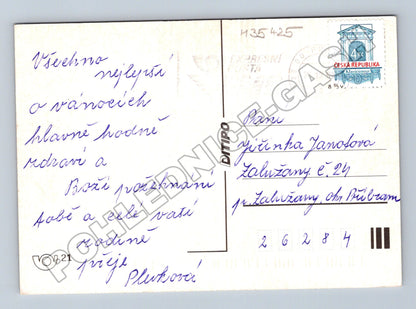 Všechno
nejlepší
o vánocích
hlavně hodně
zdraví a
Boží požehnání
Tobě a celé vaší
rodině
přeje
Plevková
21
DITIPO
H35425
EXPRESNÍ
POŠTA
4 Kč
ČESKÁ REPUBLIKA
Paní
Jiřinka Janošová
Zalužany č. 24
p. Zalužany okr. Příbram
2 6 2 8 4
POHLEDNICE-GASP